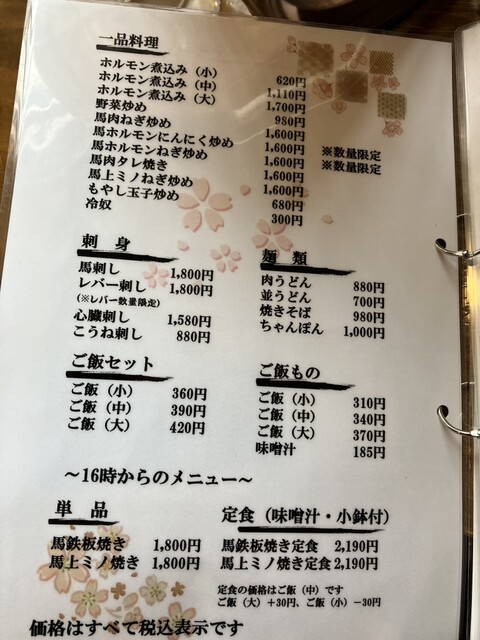 一品料理
ホルモン煮込み（小） 620円
ホルモン煮込み（中） 1,110円
ホルモン煮込み（大） 1,700円
野菜炒め 980円
馬肉ねぎ炒め 1,600円
馬ホルモンにんにく炒め 1,600円 ※数量限定
馬ホルモンねぎ炒め 1,600円 ※数量限定
馬肉タレ焼き 1,600円
馬上ミノねぎ炒め 1,600円
もやし玉子炒め 680円
冷奴 300円
刺 身
馬刺し 1,800円
レバー刺し 1,800円
(※レバー数量限定)
心臓刺し 1,580円
こうね刺し 880円
麺 類
肉うどん 880円
並うどん 700円
焼きそば 980円
ちゃんぽん 1,000円
ご飯セット
ご飯（小） 360円
ご飯（中） 390円
ご飯（大） 420円
ご飯もの
ご飯（小） 310円
ご飯（中） 340円
ご飯（大） 370円
味噌汁 185円
～16時からのメニュー～
単 品
馬鉄板焼き 1,800円
馬上ミノ焼き 1,800円
定食（味噌汁・小鉢付）
馬鉄板焼き定食 2,190円
馬上ミノ焼き定食 2,190円
定食の価格はご飯（中）です
ご飯（大）+30円、ご飯（小）-30円
価格はすべて税込表示です